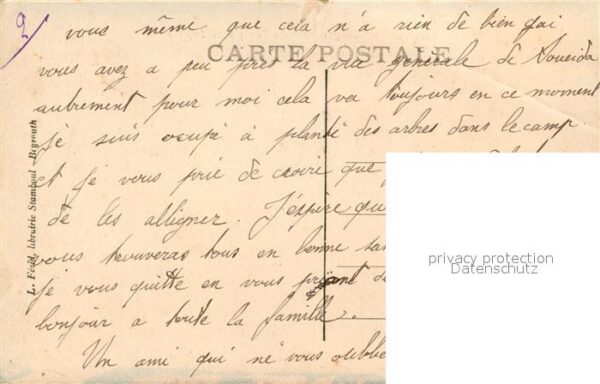 9
vous même que cela n'a rien de bien gai
CARTE POSTALE
vous avez a peu près la vue générale de Soueida
autrement pour moi cela va toujours en ce moment
je suis ocupé à planté des arbres dans le camp
et je vous prie de croire que
de les alligner. J'éspère qu
vous trouveras tous en bonne san
je vous quitte en vous priant de
bonjour a toute la famille.
Un ami qui ne vous oublie
L. Férid, librairie Stamboul - Beyrouth
privacy protection
Datenschutz